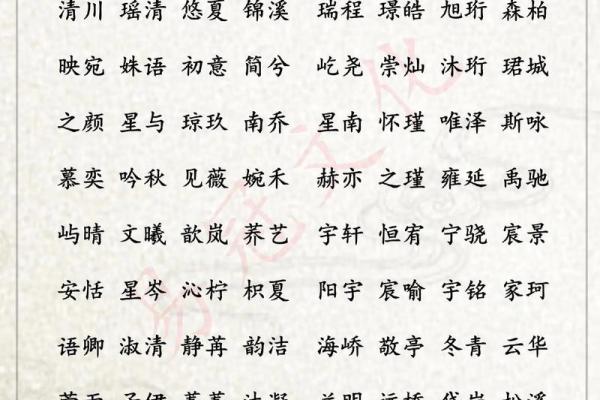 清川 瑶清 悠夏 锦溪 瑞程 璟皓 旭珩 森柏
映宛 姝语 初意 简兮 屹尧 崇灿 沐珩 珺城
之颜 星与 琼玖 南乔 星南 怀瑾 唯泽 斯咏
慕奕 吟秋 见薇 婉禾 赫亦 之瑾 雍延 禹驰
屿晴 文曦 歆岚 荞艺 宇轩 恒宥 宁骁 宸景
安恬 星岑 沁柠 枳夏 阳宇 宸喻 宇铭 家珂
语卿 淑清 静苒 韵洁 海峤 敬亭 冬青 云华